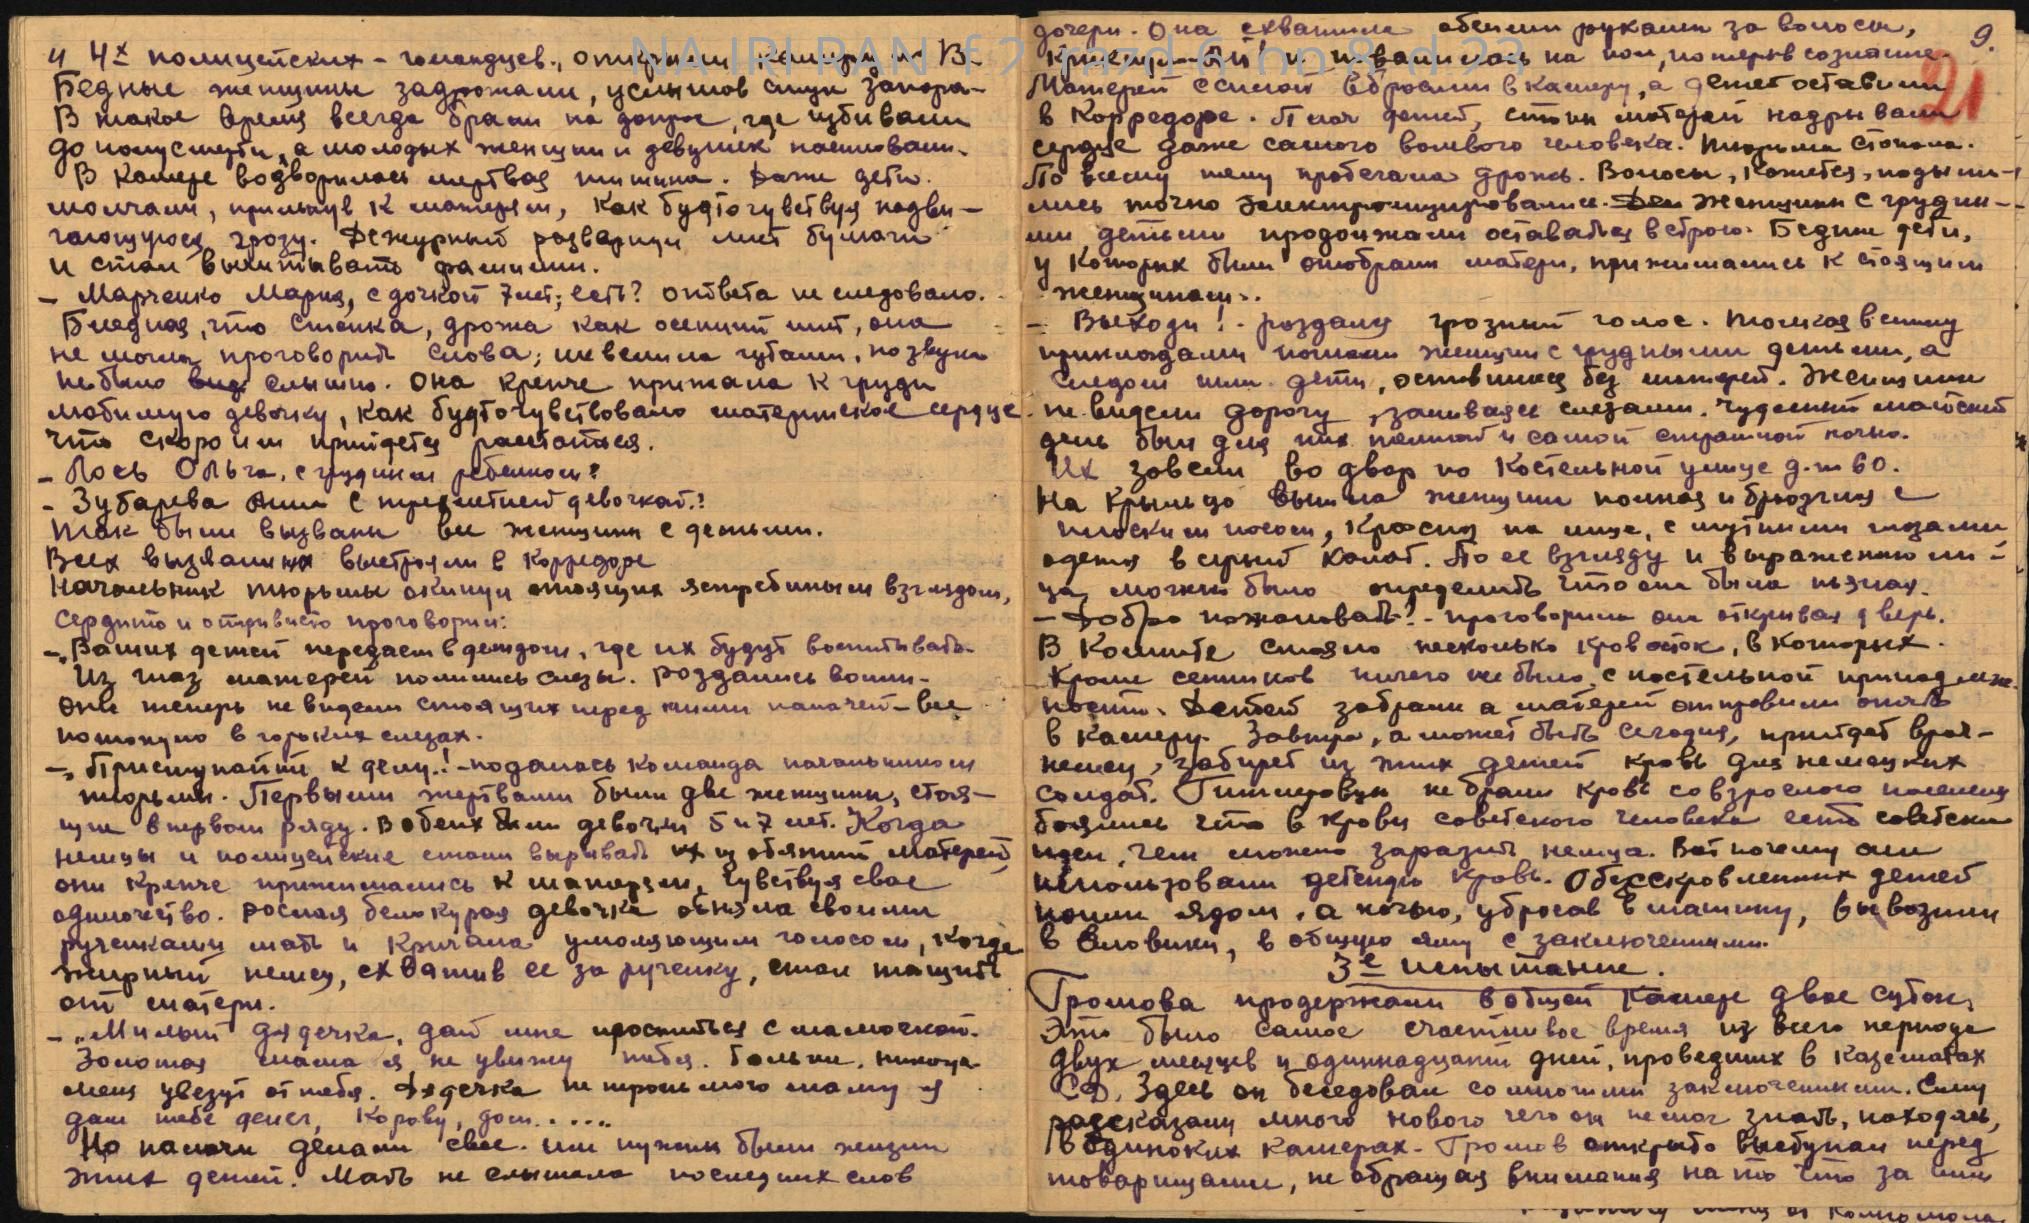 и 4х полицейских - голандцев, открыли камеру № В.
Бедные женщины задрожали, услышав стук запора-
В такое время всегда брали на допрос, где избивали
до полусмерти, а молодых женщин и девушек насиловали.
В камере водворилась мертвая тишина. Даже дети.
молчали, прильнув к матерям, как будто чувствуя надви-
гающуюся грозу. Дежурный развернул лист бумаги
и стал вычитывать фамилии.
- Марченко Мария, с дочкой 7 лет; есть? ответа не следовало.
Бледная, что стенка, дрожа как осенний лист, она
не могла проговорить слова; шевелила губами, но звука
не было слышно. Она крепче прижала к груди
любимую девочку, как будто чувствовало материнское сердце
что скоро им прийдется растаться.
- Лось Ольга, с грудным ребенком?
- Зубарева Анна с трехлетней девочкой?
Так были вызваны все женщины с детьми.
Всех вызваных выстроили в корредоре
Начальник тюрьмы окинул стоящих ястребиным взглядом,
сердито и отривисто проговорил:
- „Ваших детей передаем в детдом, где их будут воспитывать.
Из глаз матерей полились слезы. раздались вопли-
Они теперь не видели стоящих перед ними палачей - все
потонуло в горьких слезах.
- „Приступайте к делу.! - подалась команда начальником
тюрьмы. Первыми жертвами были две женщины, стоя-
щие в первом ряду. В обеих были девочки 5 и 7 лет. Когда
немцы и полицейские стали вырывать их из обятий матерей,
они крепче прижимались к матерям, чувствуя свое
одиночество. рослая белокурая девочка обняла своими
рученками мать и кричала умоляющим голосом, когда
жирный немец, схватив ее за рученку, стал тащить
от матери.
- „Милый дядечка, дай мне проститься с мамочкой.
Золотая мама я не увижу тебя. больше, никогда
меня увезут от тебя. Дядечка не тронь мою маму я
дам тебе денег, корову, дом.....
Но палачи делали свое. им нужны были жизни
этих детей. Мать не слышала последних слов
NA IRI RAN f 2 razd 6 op 8 d 23
9.
21
дочери. Она схватила обеими руками за волосы,
крикнула - Ай! и повалилась на пол, потеряв сознание.
Матерей силой вбросили в камеру, а детей оставили
в корредоре. Плач детей, стоны матерей надрывали
сердце даже самого волевого человека. тюрьма стонала.
По всему телу пробегала дрожь. Волосы, кажется, поднима-
лись точно электролизировались. женщины с грудны-
ми детьми продолжали оставаться в строю. Бедные дети,
у которых были отобраны матери, прижимались к стоящим
женщинам.
- Выходи! - раздался грозный голос. толкая в спину
прикладами погнали женщин с грудными детьми, а
следом шли дети, оставшиеся без матерей. Женщины
не видели дорогу, заливаясь слезами. Чудесный майский
день был для них темной и самой страшной ночью.
Их завели во двор по Костельной улице д. № 60.
На крыльцо вышла женщина полная и брюзглая с
плоским носом, красная на лице, с мутными глазами
одетая в серый халат. По ее взгляду и выражению ли-
ца можно было определить что она была пьяная.
- Добро пожаловать! - проговорила она открывая дверь.
В комнате стояло несколько кроваток, в которых
кроме сенников ничего не было, с постельной принадлеж-
ности. Детей забрали а матерей отправили опять
в камеру. Завтра, а может быть сегодня, прийдет врач-
немец, заберет из этих детей кровь для немецких
солдат. Гитлеровцы не брали кровь со взрослого населения
боялись что в крови советского человека есть советские
идеи, чем можно заразить немца. Вот почему они
использовали детскую кровь. Обезкровленных детей
поили ядом, а ночью, убросав в машину, вывозили
в Еловики, в общую яму с заключенными.
3е испытание.
Громова продержали в общей камере двое суток.
Это было самое счастливое время из всего периода
двух месяцев и одиннадцати дней, проведших в казематах
СД. Здесь он беседовал со многими заключенными. Ему
рассказали много нового чего он не мог знать, находясь
в одиноких камерах. Громов открыто выступал перед
товарищами, не обращая внимания на то что за ним